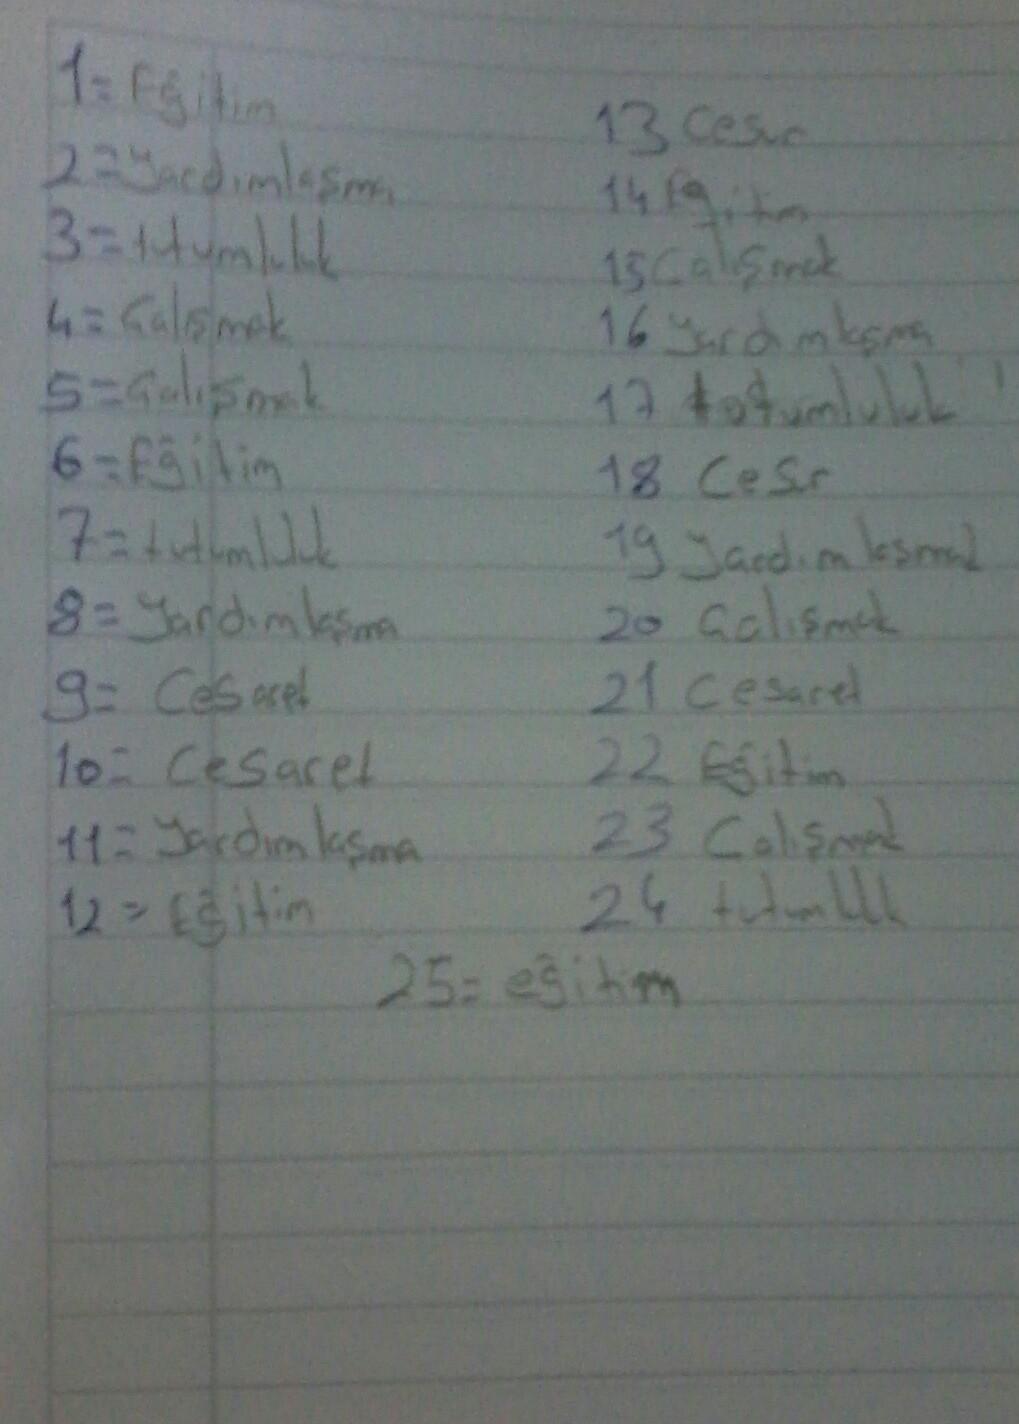 1= Eğitim
2= Yardımlaşma
3= tutumluluk
4= Çalışmak
5= Çalışmak
6= Eğitim
7= tutumluluk
8= Yardımlaşma
9= Cesaret
10= Cesaret
11= Yardımlaşma
12= Eğitim
13 Cesur
14 Eğitim
15 Çalışmak
16 Yardımlaşma
17 tutumluluk
18 Cesur
19 Yardımlaşma
20 Çalışmak
21 Cesaret
22 Eğitim
23 Çalışmak
24 tutumluluk
25= eğitim